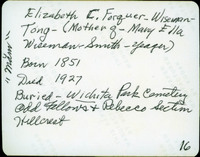 Elizabeth C. Forquer - Wiseman -
Tong - (Mother of - Mary Ella
Wiseman - Smith - Yeager)
"Widow"
Born 1851
Died 1927
Buried - Wichita Park Cemetery
Odd Fellows & Rebecca Section
Hillcrest
16